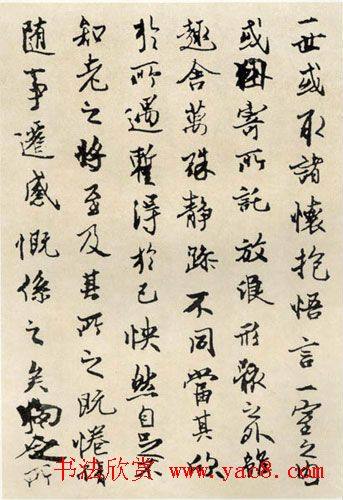 一世或取諸懷抱悟言一室之內
或因寄所託放浪形骸之外雖
趣舍萬殊靜躁不同當其欣
於所遇暫得於己怏然自足不
知老之將至及其所之既惓情
随事遷感慨係之矣向之所
书法欣赏 www.yac8.com